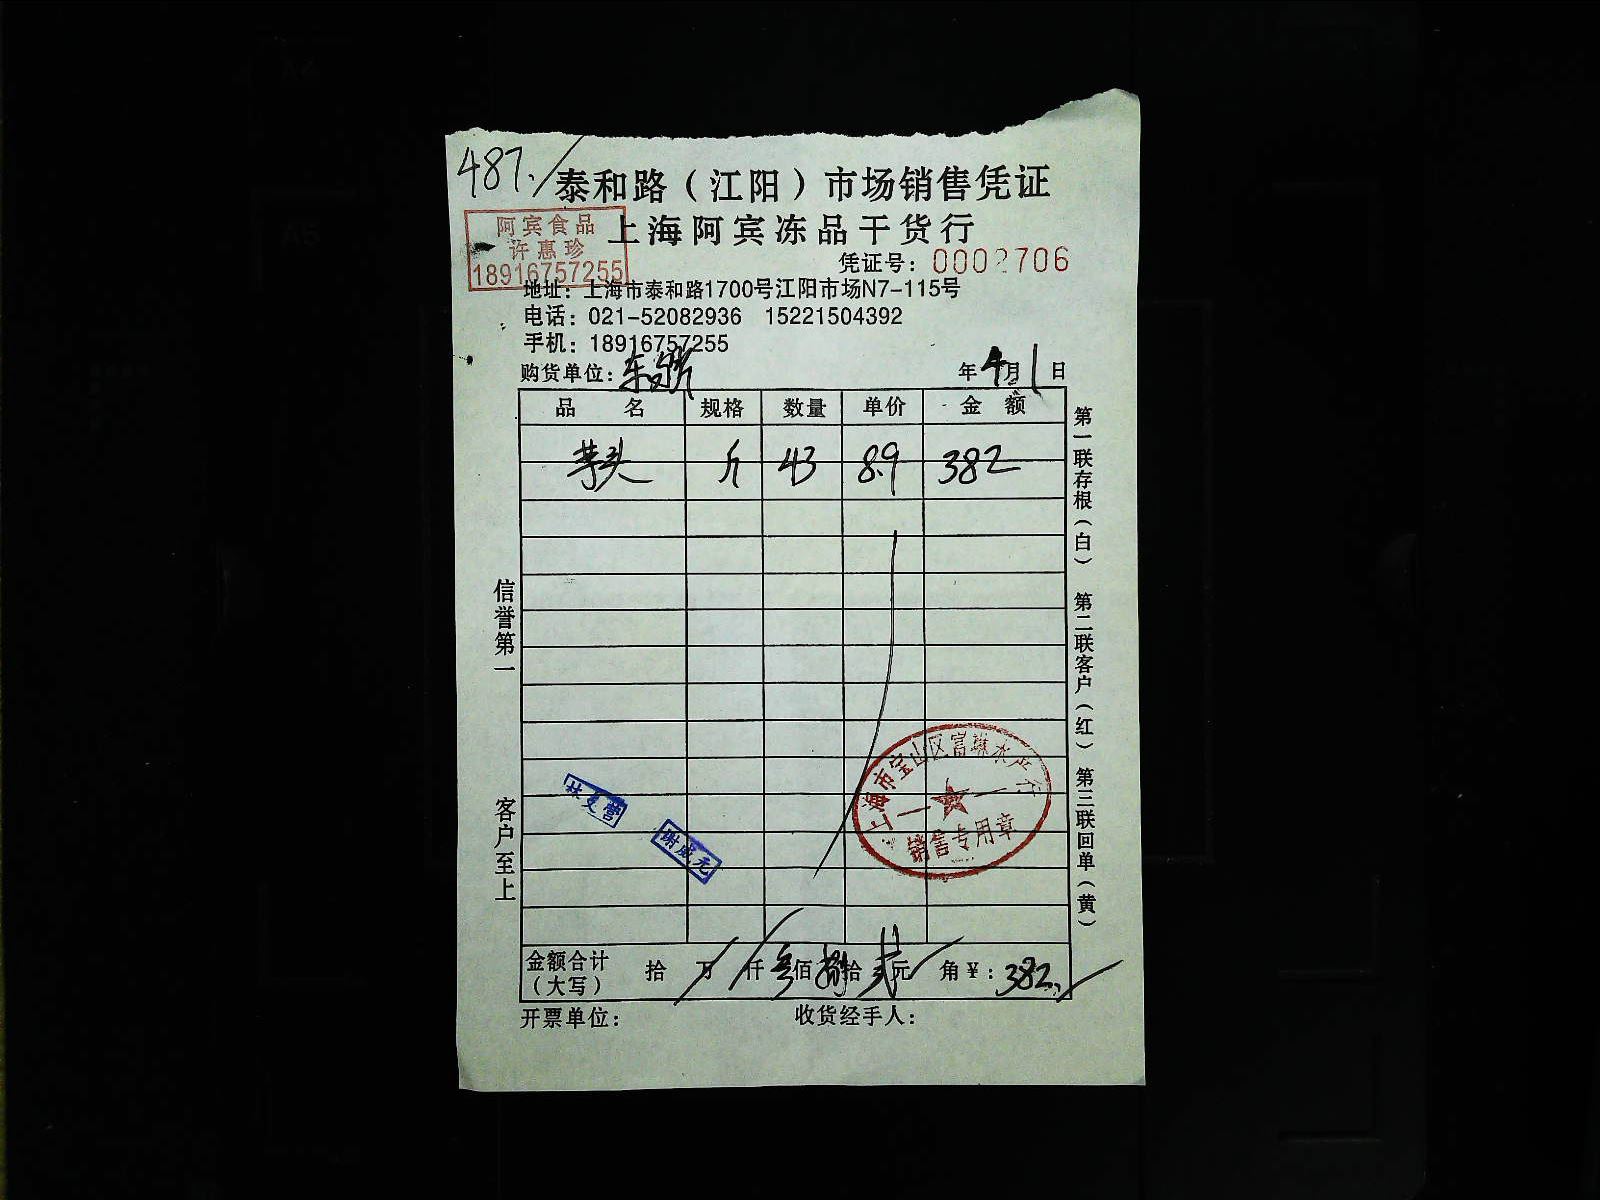 487.
泰和路（江阳）市场销售凭证
阿宾食品
许惠珍
18916757255
上海阿宾冻品干货行
凭证号：0002706
地址：上海市泰和路1700号江阳市场N7-115号
电话：021-52082936 15221504392
手机：18916757255
购货单位： 年4月1日
品名 规格 数量 单价 金额
芋头 斤 43 8.9 382
第一联存根（白） 第二联客户（红） 第三联回单（黄）
信誉第一 客户至上
上海市宝山区富琳水产行
销售专用章
谢成元
金额合计（大写） 拾 万 仟叁佰捌拾贰元 角￥：382.
开票单位： 收货经手人：